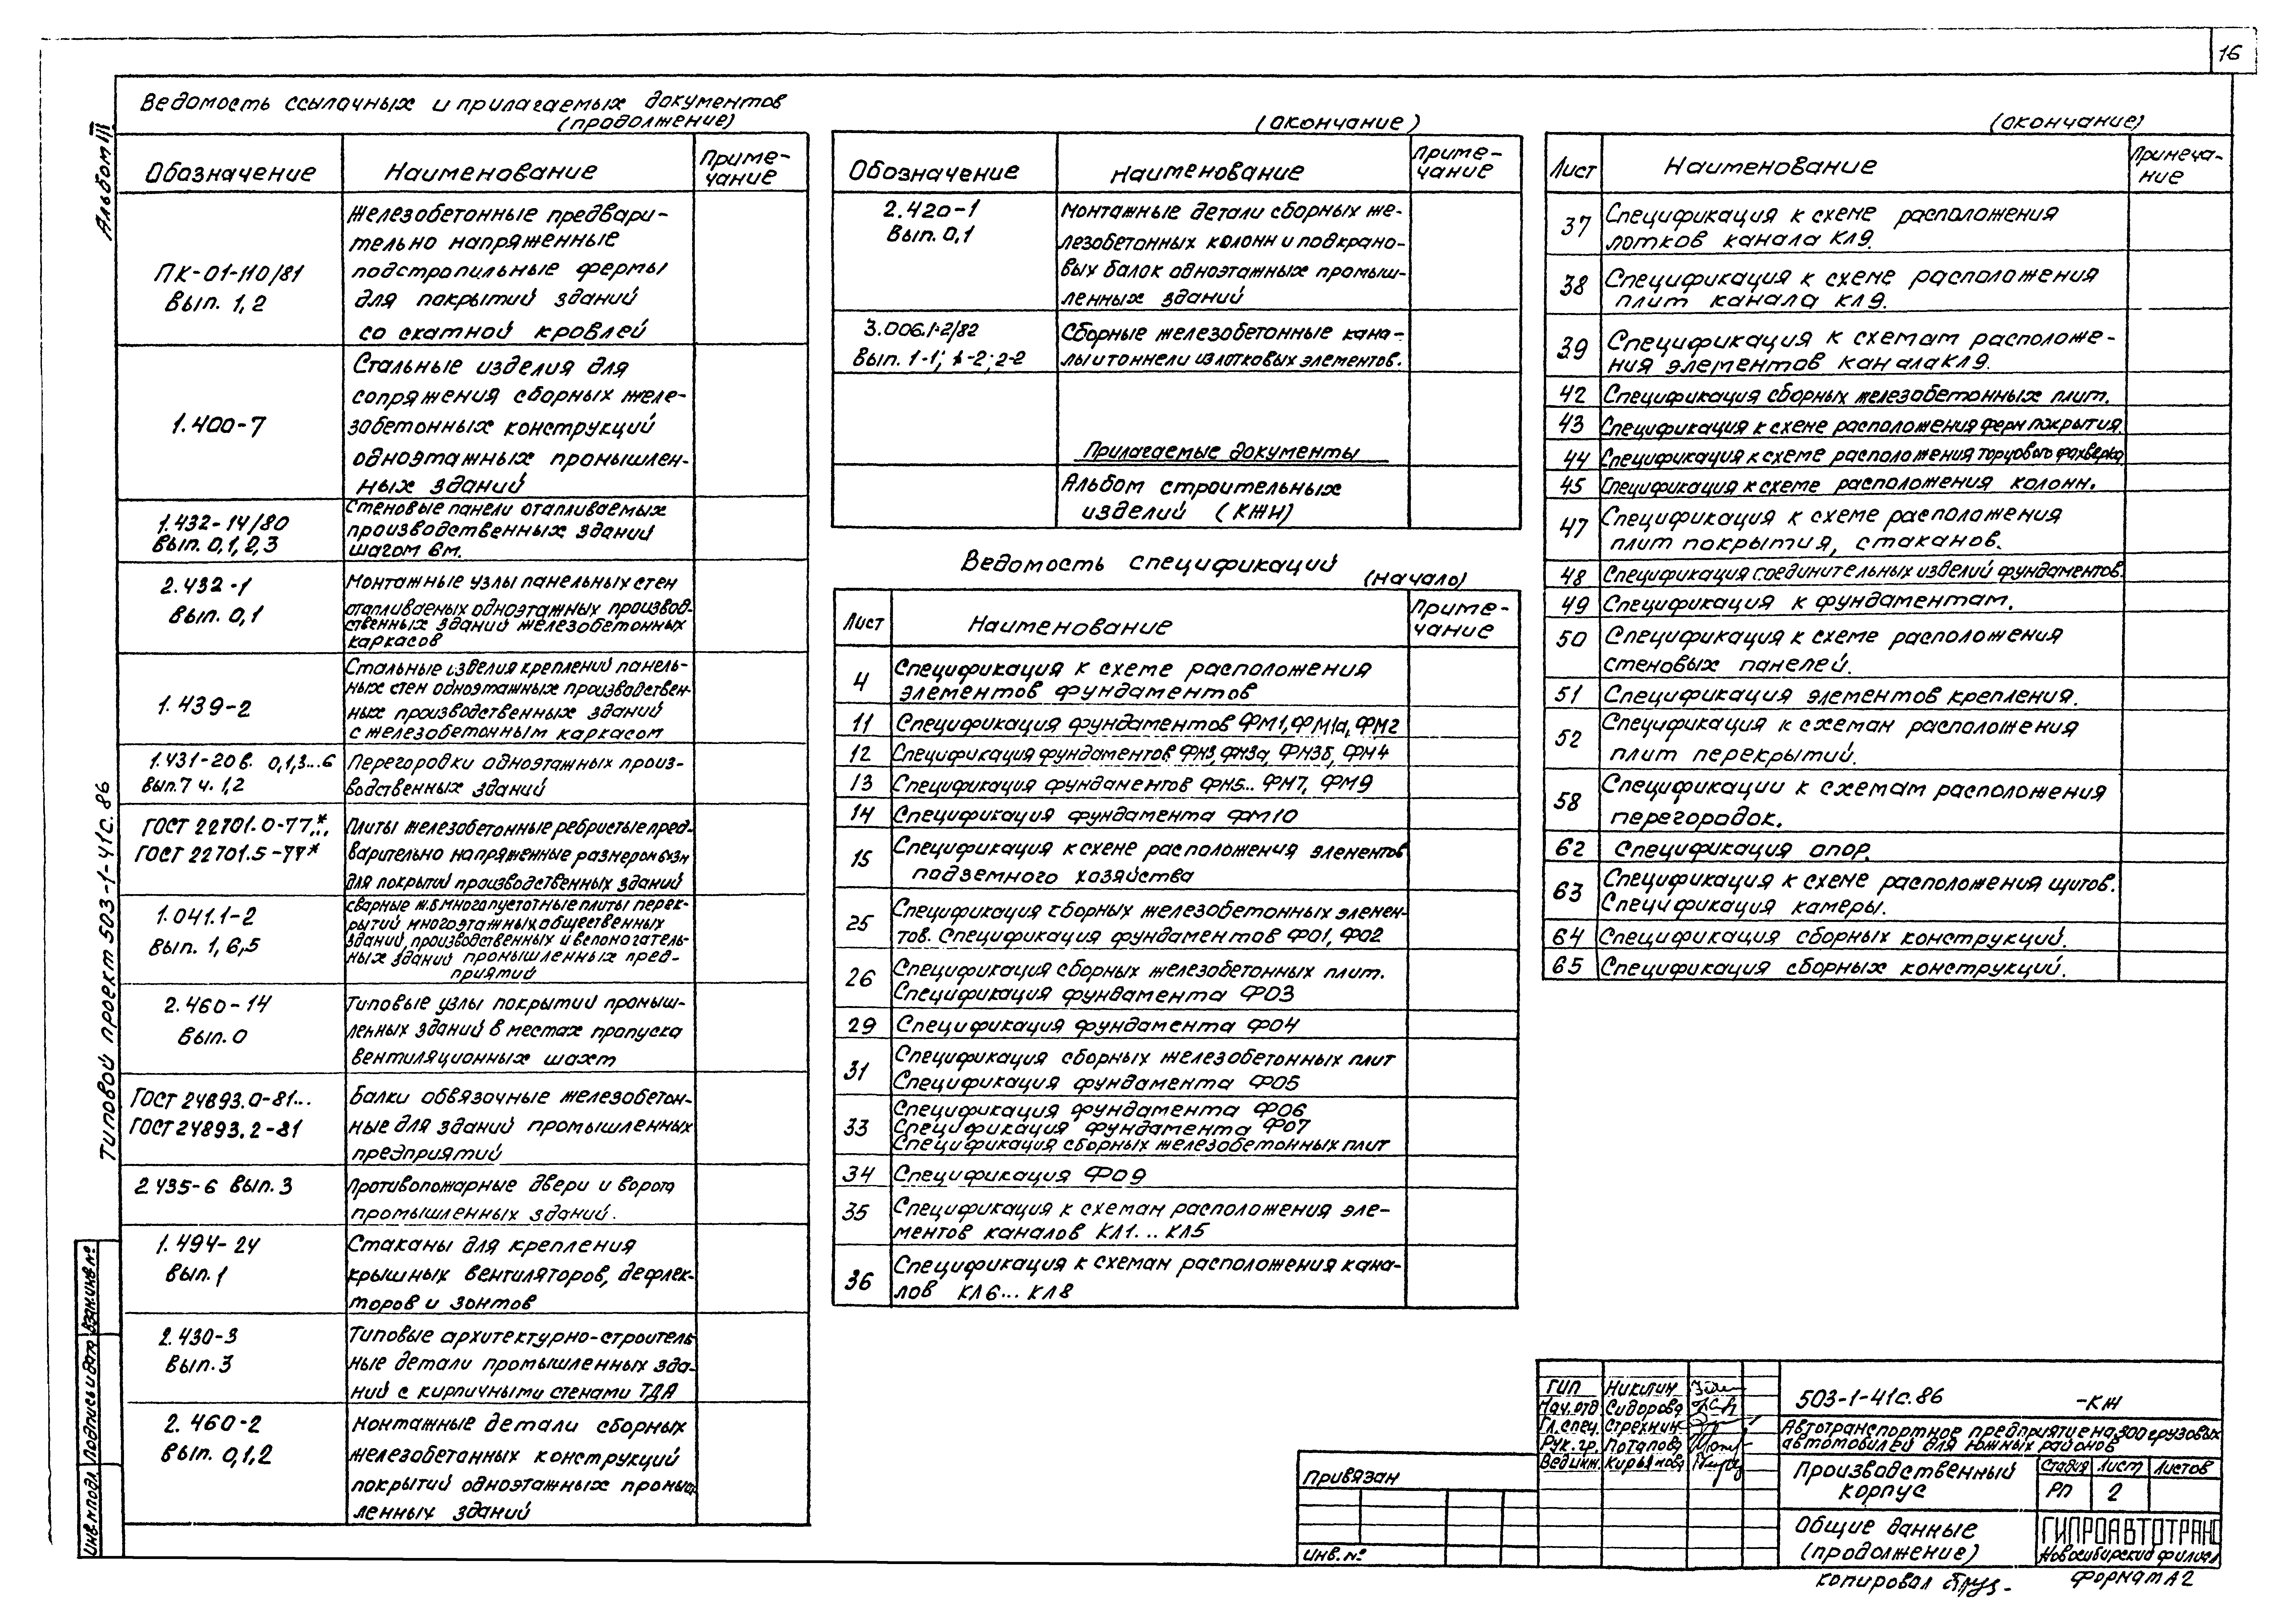 16
Альбом III
Типовой проект 503-1-41с.86
Ведомость ссылочных и прилагаемых документов
(продолжение)
Обозначение
Наименование
Приме-
чание
ПК-01-110/81
Вып. 1, 2
Железобетонные предвари-
тельно напряженные
подстропильные фермы
для покрытий зданий
со скатной кровлей
1.400-7
Стальные изделия для
сопряжения сборных желе-
зобетонных конструкций
одноэтажных промышлен-
ных зданий
1.432-14/80
Вып. 0,1,2,3
Стеновые панели отапливаемых
производственных зданий
шагом 6м.
2.432-1
Вып. 0,1
Монтажные узлы панельных стен
отапливаемых одноэтажных производ-
ственных зданий железобетонных
каркасов
1.439-2
Стальные изделия креплений панель-
ных стен одноэтажных производствен-
ных производственных зданий
с железобетонным каркасом
1.431-20 в. 0,1,3...6
Вып.7 ч. 1,2
Перегородки одноэтажных произ-
водственных зданий
ГОСТ 22701.0-77*...
ГОСТ 22701.5-77*
Плиты железобетонные ребристые пред-
варительно напряженные размером 6х3м
для покрытий производственных зданий
1.041.1-2
Вып. 1, 6,5
Сварные ж.б. многопустотные плиты перек-
рытий многоэтажных общественных
зданий, производственных и вспомогатель-
ных зданий промышленных пред-
приятий
2.460-14
Вып. 0
Типовые узлы покрытий промыш-
ленных зданий в местах пропуска
вентиляционных шахт
ГОСТ 24893.0-81...
ГОСТ 24893.2-81
Балки обвязочные железобетон-
ные для зданий промышленных
предприятий
2.435-6 Вып. 3
Противопожарные двери и ворота
промышленных зданий.
1.494-24
Вып. 1
Стаканы для крепления
крышных вентиляторов, дефлек-
торов и зонтов
2.430-3
Вып. 3
Типовые архитектурно-строитель
ные детали промышленных зда-
ний с кирпичными стенами ТДА
2.460-2
Вып. 0,1,2
Монтажные детали сборных
железобетонных конструкций
покрытий одноэтажных промыш
ленных зданий
(окончание)
Обозначение
Наименование
Приме-
чание
2.420-1
Вып. 0,1
Монтажные детали сборных же-
лезобетонных колонн и подкрано-
вых балок одноэтажных промыш-
ленных зданий
3.006.1-2/82
Вып. 1-1; 1-2; 2-2
Сборные железобетонные кана-
лы и тоннели из лотковых элементов.
Прилагаемые документы
Альбом строительных
изделий (КЖИ)
Ведомость спецификаций
(начало)
Лист
Наименование
Приме-
чание
4
Спецификация к схеме расположения
элементов фундаментов
11 Спецификация фундаментов ФМ1, ФМ1а, ФМ2
12 Спецификация фундаментов ФМ3, ФМ3а, ФМ3б, ФМ4
13 Спецификация фундаментов ФМ5... ФМ7, ФМ9
14 Спецификация фундамента ФМ10
15
Спецификация к схеме расположения элементов
подземного хозяйства
25
Спецификация сборных железобетонных элемен-
тов. Спецификация фундаментов ФО1, ФО2
26
Спецификация сборных железобетонных плит.
Спецификация фундамента ФО3
29 Спецификация фундамента ФО4
31
Спецификация сборных железобетонных плит
Спецификация фундамента ФО5
33
Спецификация фундамента ФО6
Спецификация фундамента ФО7
Спецификация сборных железобетонных плит
34 Спецификация ФО9
35
Спецификация к схемам расположения эле-
ментов каналов КЛ1... КЛ5
36
Спецификация к схемам расположения кана-
лов КЛ6... КЛ8
(окончание)
Лист
Наименование
Примеча-
ние
37
Спецификация к схеме расположения
лотков канала КЛ9.
38
Спецификация к схеме расположения
плит канала КЛ9.
39
Спецификация к схемам расположе-
ния элементов канала КЛ9.
42 Спецификация сборных железобетонных плит.
43 Спецификация к схеме расположения ферм покрытия.
44 Спецификация к схеме расположения торцового фахверка
45 Спецификация к схеме расположения колонн.
47
Спецификация к схеме расположения
плит покрытия, стаканов.
48 Спецификация соединительных изделий фундаментов.
49 Спецификация к фундаментам.
50
Спецификация к схеме расположения
стеновых панелей.
51 Спецификация элементов крепления.
52
Спецификация к схемам расположения
плит перекрытий.
58
Спецификации к схемам расположения
перегородок.
62 Спецификация опор.
63
Спецификация к схеме расположения щитов.
Спецификация камеры.
64 Спецификация сборных конструкций.
65 Спецификация сборных конструкций.
Инв.№подл. Подпись и дата Взам.инв.№
Привязан
Инв.№
ГИП Никитин
Нач.отд. Сидорова
Гл.спец. Стрехнин
Рук.гр. Потапова
Вед.инж. Кирьянова
503-1-41с.86 -КЖ
Автотранспортное предприятие на 300 грузовых
автомобилей для южных районов
Производственный
корпус
Стадия Лист Листов
РП 2
Общие данные
(продолжение)
ГИПРОАВТОТРАНС
Новосибирский филиал
Копировал
Формат А2